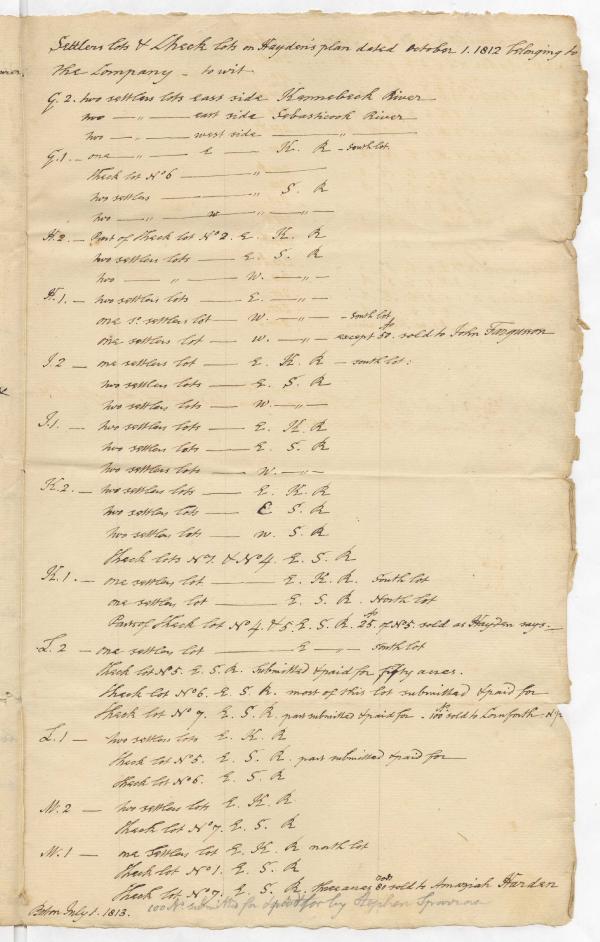 Settlers lots & Check lots on Hayden's plan dated October 1. 1812 belonging to
the Company - to wit
G. 2. two settlers lots east side Kennebeck River
two — " — east side Sebasticook River
two — " — west side — " —
G. 1. — one — " — E — K. R — South lot
Check lot No 6 — " —
two settlers — " S. R
two — " — w — " — " —
H. 2. — Part of Check lot No 2. E. K. R
two settlers lots — E. S. R
two — " — W. — " —
H. 1. — two settlers lots — E. — " —
one s. settlers lot — W. — " — South lot
one settlers lot — W. — " — except 50 sold to John Ferguson
I. 2 — one settlers lot — E. K. R — South lot.
two settlers lots — E. S. R
two settlers lots — W. — " —
I. 1. — two settlers lots — E. K. R
two settlers lots — E. S. R
two settlers lots — W. — " —
K. 2 — two settlers lots — E. K. R
two settlers lots — E S. R
two settlers lots — W. S. R
Check lots No 1. & No 4. E. S. R
K. 1. — one settlers lot — E. K. R. South lot
one settlers lot — E. S. R. North lot
Part of Check lot No 4. & 5. E. S. R. 25. of No 5. sold as Hayden says. —
L. 2 — one settlers lot — E — " — South lot
Check lot No 5. E. S. R. Submitted & paid for fifty acres.
Check lot No 6. E. S. R. most of this lot submitted & paid for
Check lot No 7. E. S. R. part submitted & paid for. 100 sold to Cornforth
L. 1 — two settlers lots E. K. R
Check lot No 5. E. S. R part submitted & paid for
Check lot No 6. E. S. R
M. 2 — two settlers lots E. K. R
Check lot No 7. E. S. R
M. 1 — one settlers lot E. K. R north lot
Check lot No 1. E. S. R
Check lot No 7. E. S. R. three acres 80 rods sold to Amaziah Harden
100 submitted for & paid for by Stephen
Boston July 1. 1813.